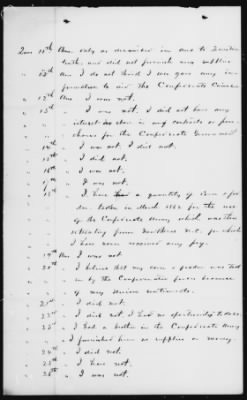 Ques 11th Ans. only as described in ans to
and did not furnish any supplies
" 12th Ans I do not think I ever gave any in-
formation to aid the Confederate
" 13th Ans I was not.
" 13th " I was not, I did not have any
interest or share in any contracts or pur-
chases for the Confederate Government
" 14th " I was not, I did not.
" 15th " I did not.
" 16th " I was not.
" 17th " I was not.
" 18th " I have a quantity of corn & fod-
der taken in March 1865 for the use
of the Confederate Army which was then
retreating from Northern N.C. for which
I have never received any pay.
" 19th Ans I was not
" 20th " I believe that my corn & fodder was taken
by the Confederate forces because
of my Union sentiments.
" 21st " I did not.
" 22d " I did not, I had no opportunity to do so.
" 23d " I had a brother in the Confederate Army
I furnished him no supplies or money.
" 24th " I did not.
" 25th " I have not.
" 26th " I was not.